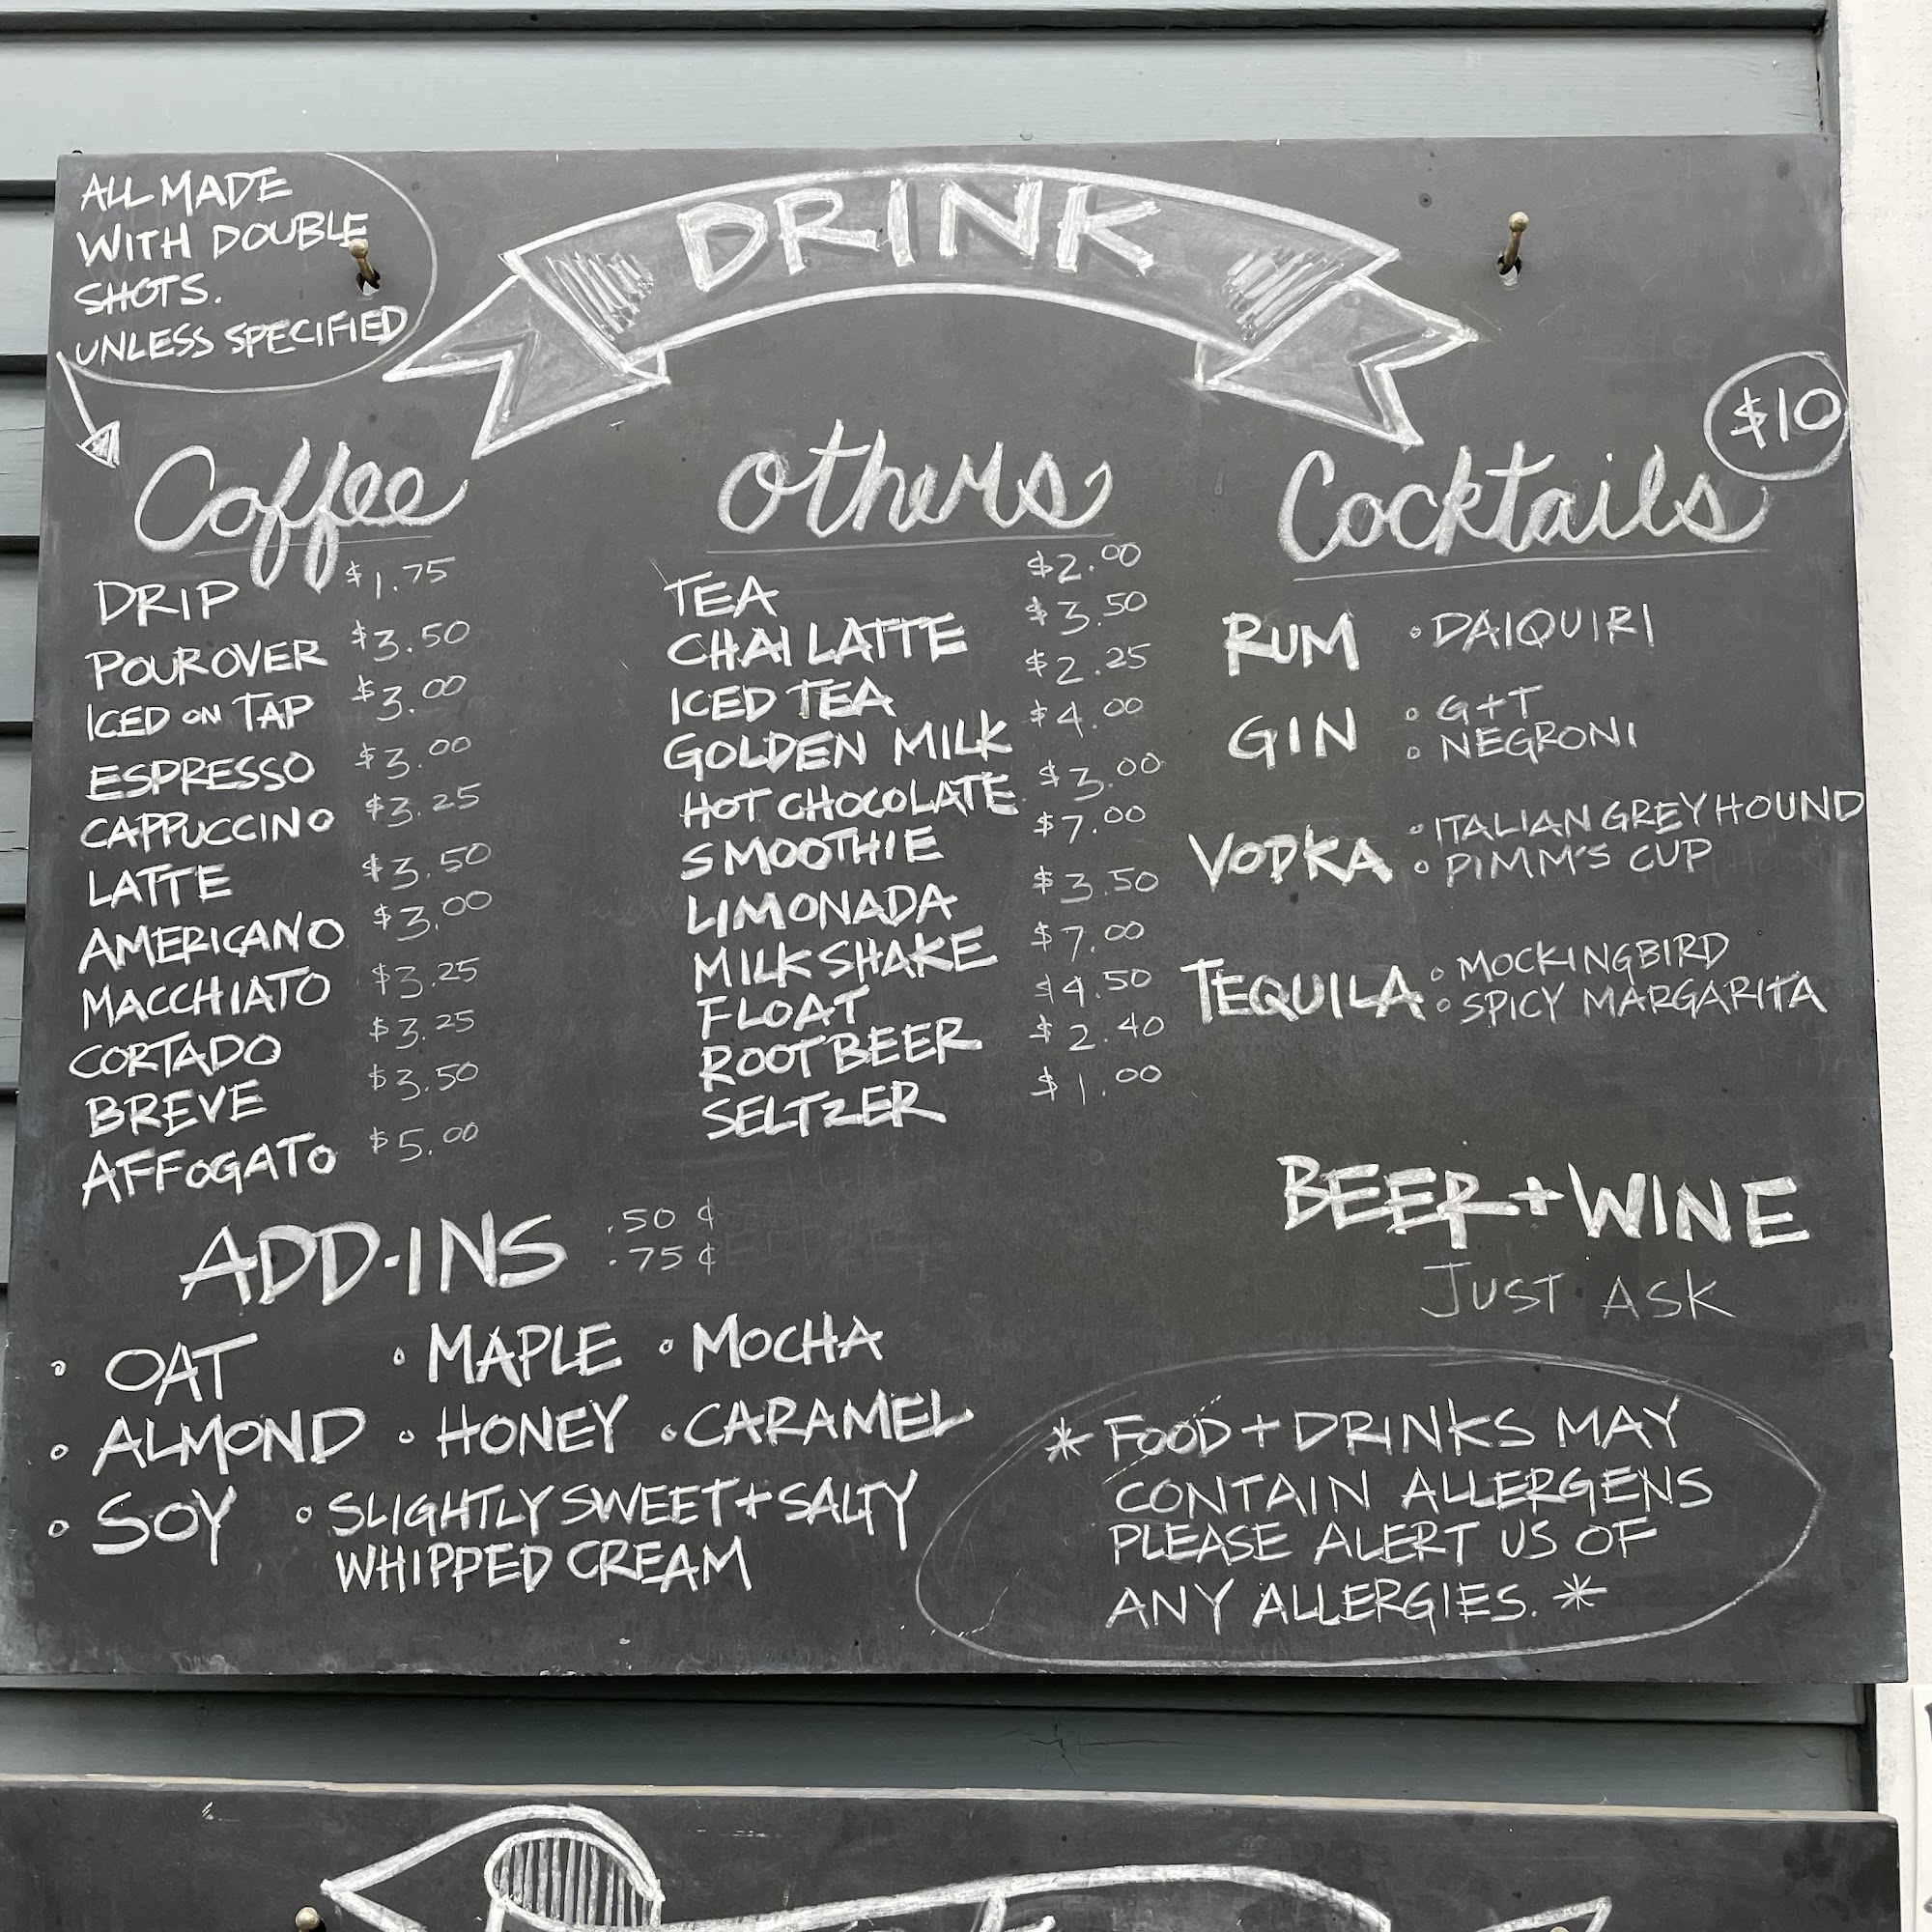 ALL MADE
WITH DOUBLE
SHOTS.
UNLESS SPECIFIED
DRINK
Coffee
DRIP $1.75
POUROVER $3.50
ICED ON TAP $3.00
ESPRESSO $3.00
CAPPUCCINO $3.25
LATTE $3.50
AMERICANO $3.00
MACCHIATO $3.25
CORTADO $3.25
BREVE $3.50
AFFOGATO $5.00
others
TEA $2.00
CHAI LATTE $3.50
ICED TEA $2.25
GOLDEN MILK $4.00
HOT CHOCOLATE $3.00
SMOOTHIE $7.00
LIMONADA $3.50
MILKSHAKE $7.00
FLOAT $4.50
ROOT BEER $2.40
SELTZER $1.00
Cocktails $10
RUM • DAIQUIRI
GIN • G+T
• NEGRONI
VODKA • ITALIAN GREYHOUND
• PIMM'S CUP
TEQUILA • MOCKINGBIRD
• SPICY MARGARITA
BEER + WINE
JUST ASK
ADD-INS .50¢
.75¢
• OAT • MAPLE • MOCHA
• ALMOND • HONEY • CARAMEL
• SOY • SLIGHTLY SWEET + SALTY
WHIPPED CREAM
* FOOD + DRINKS MAY
CONTAIN ALLERGENS
PLEASE ALERT US OF
ANY ALLERGIES. *